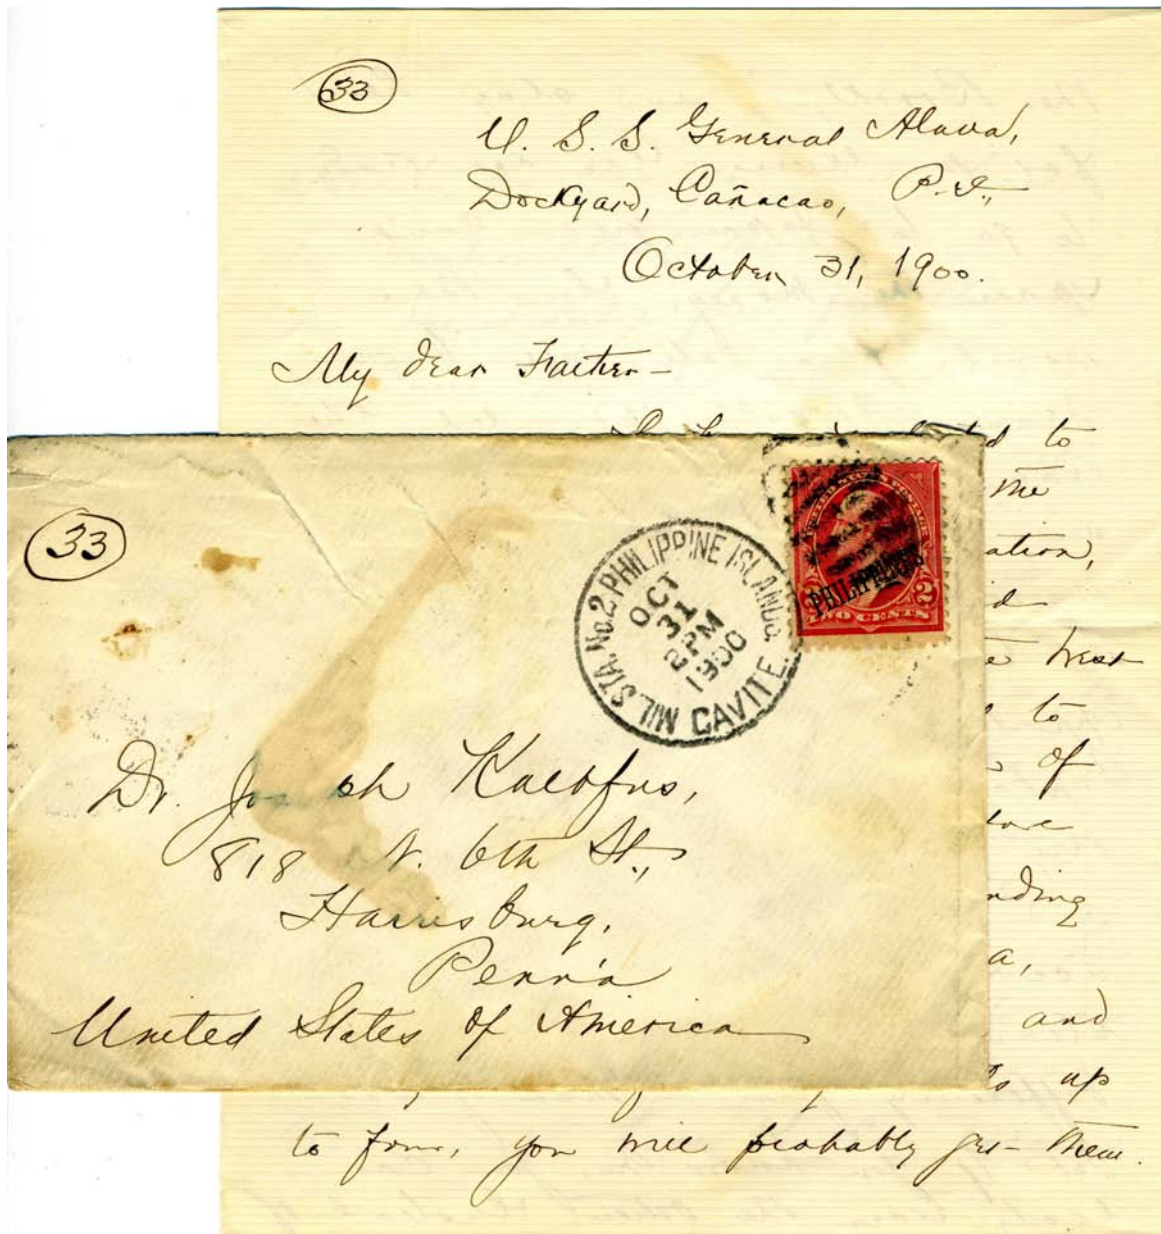 33
U. S. S. General Alava,
Dockyard, Cañacao, P. I.,
October 31, 1900.
My dear Father -
to
the
ation,
d
best
to
of
nding
a,
and
up
to four, you will probably get them.
33
MIL. STA. No. 2 PHILIPPINE ISLANDS.
OCT
31
2 PM
1900
CAVITE
PHILIPPINES
2 2
TWO CENTS
Dr. Joseph Kalbfus,
818 N. 6th St.,
Harrisburg,
Penn'a
United States of America